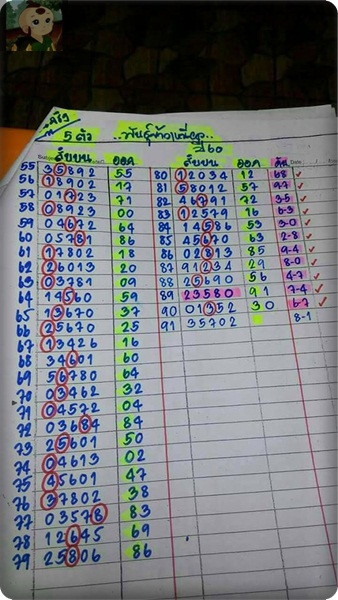 5 ตัว
360
วิ่งบน ออก วิ่งบน ออก
55 35892 55 80 12034 12 68
56 18902 17 81 58012 57 97
57 01723 71 82 46791 72 3-5
58 08923 00 83 12579 16 6-3
59 04672 64 84 14586 53 3-0
60 05781 86 85 45670 63 2-8
61 17802 18 86 02813 85 9-4
62 26013 20 87 91234 29 8-0
63 03781 09 88 25690 56 4-7
64 14560 59 89 23580 91 7-4
65 13670 37 90 01352 30 6-7
66 25670 25 91 35702 8-1
67 13426 16
68 34601 60
69 56780 64
70 03462 32
71 04572 04
72 03684 84
73 25601 50
74 04613 02
75 45601 47
76 37802 38
77 03578 83
78 12645 69
79 25806 86